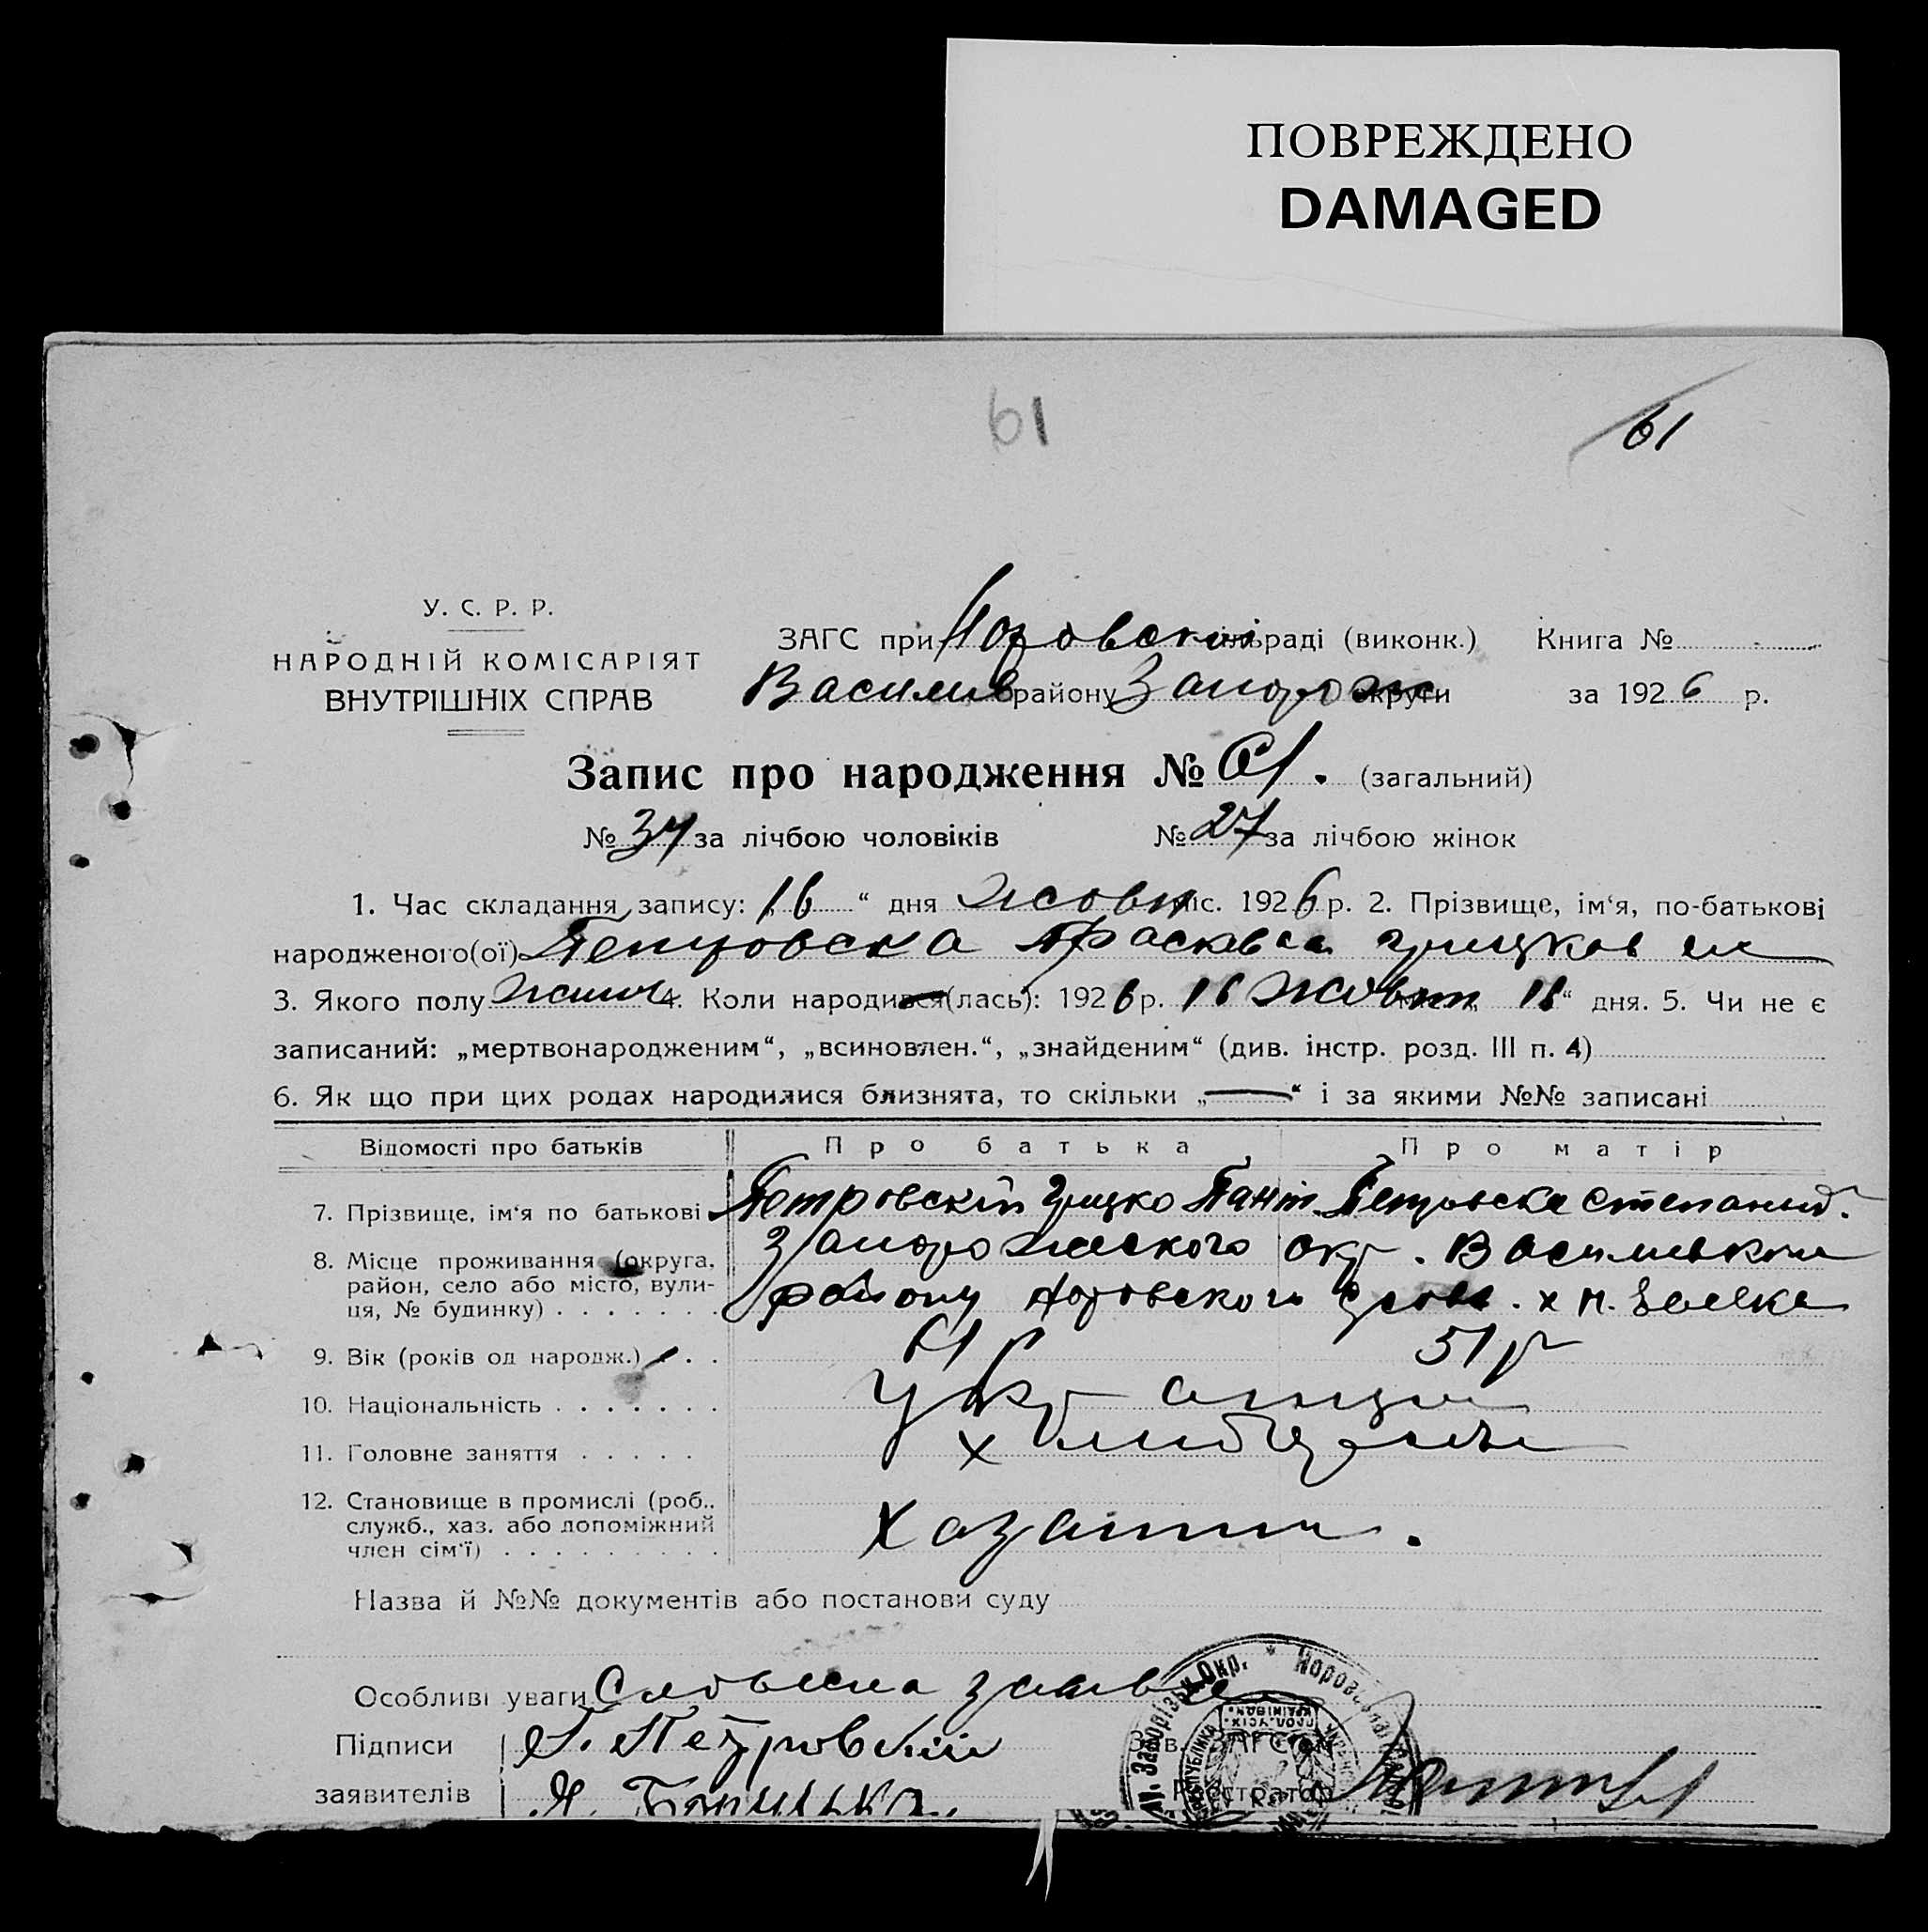 ПОВРЕЖДЕНО
DAMAGED
61
61
У. С. Р. Р.
НАРОДНІЙ КОМІСАРІЯТ
ВНУТРІШНІХ СПРАВ
ЗАГС при раді (виконк.) Книга №
Василів району Запорож округи за 1926 р.
Запис про народження № 61. (загальний)
№ 34 за лічбою чоловіків № 27 за лічбою жінок
1. Час складання запису: „16“ дня жовт міс. 1926 р. 2. Прізвище, ім‘я, по-батькові
народженого(ої) Петровска Прасковя
3. Якого полу жіноч 4. Коли народився(лась): 1926 р. 16 жовтн 16“ дня. 5. Чи не є
записаний: „мертвонародженим“, „всиновлен.“, „знайденим“ (див. інстр. розд. III п. 4)
6. Як що при цих родах народилися близнята, то скільки „—“ і за якими №№ записані
Відомості про батьків Про батька Про матір
7. Прізвище, ім‘я по батькові Петровскій Грицко Пант. Петровска Степанид.
8. Місце проживання (округа, район, село або місто, вулиця, № будинку) Запорожского окр. Васильевского
району
9. Вік (років од народж.) 61 р 51 р
10. Національність Украинци
11. Головне заняття
12. Становище в промислі (роб., служб., хаз. або допоміжний член сім‘ї) Хазаини.
Назва й №№ документів або постанови суду
Особливі уваги Словесна заява
Підписи Г. Петровскій Зав. ЗАГСом
заявителів Реєстратор